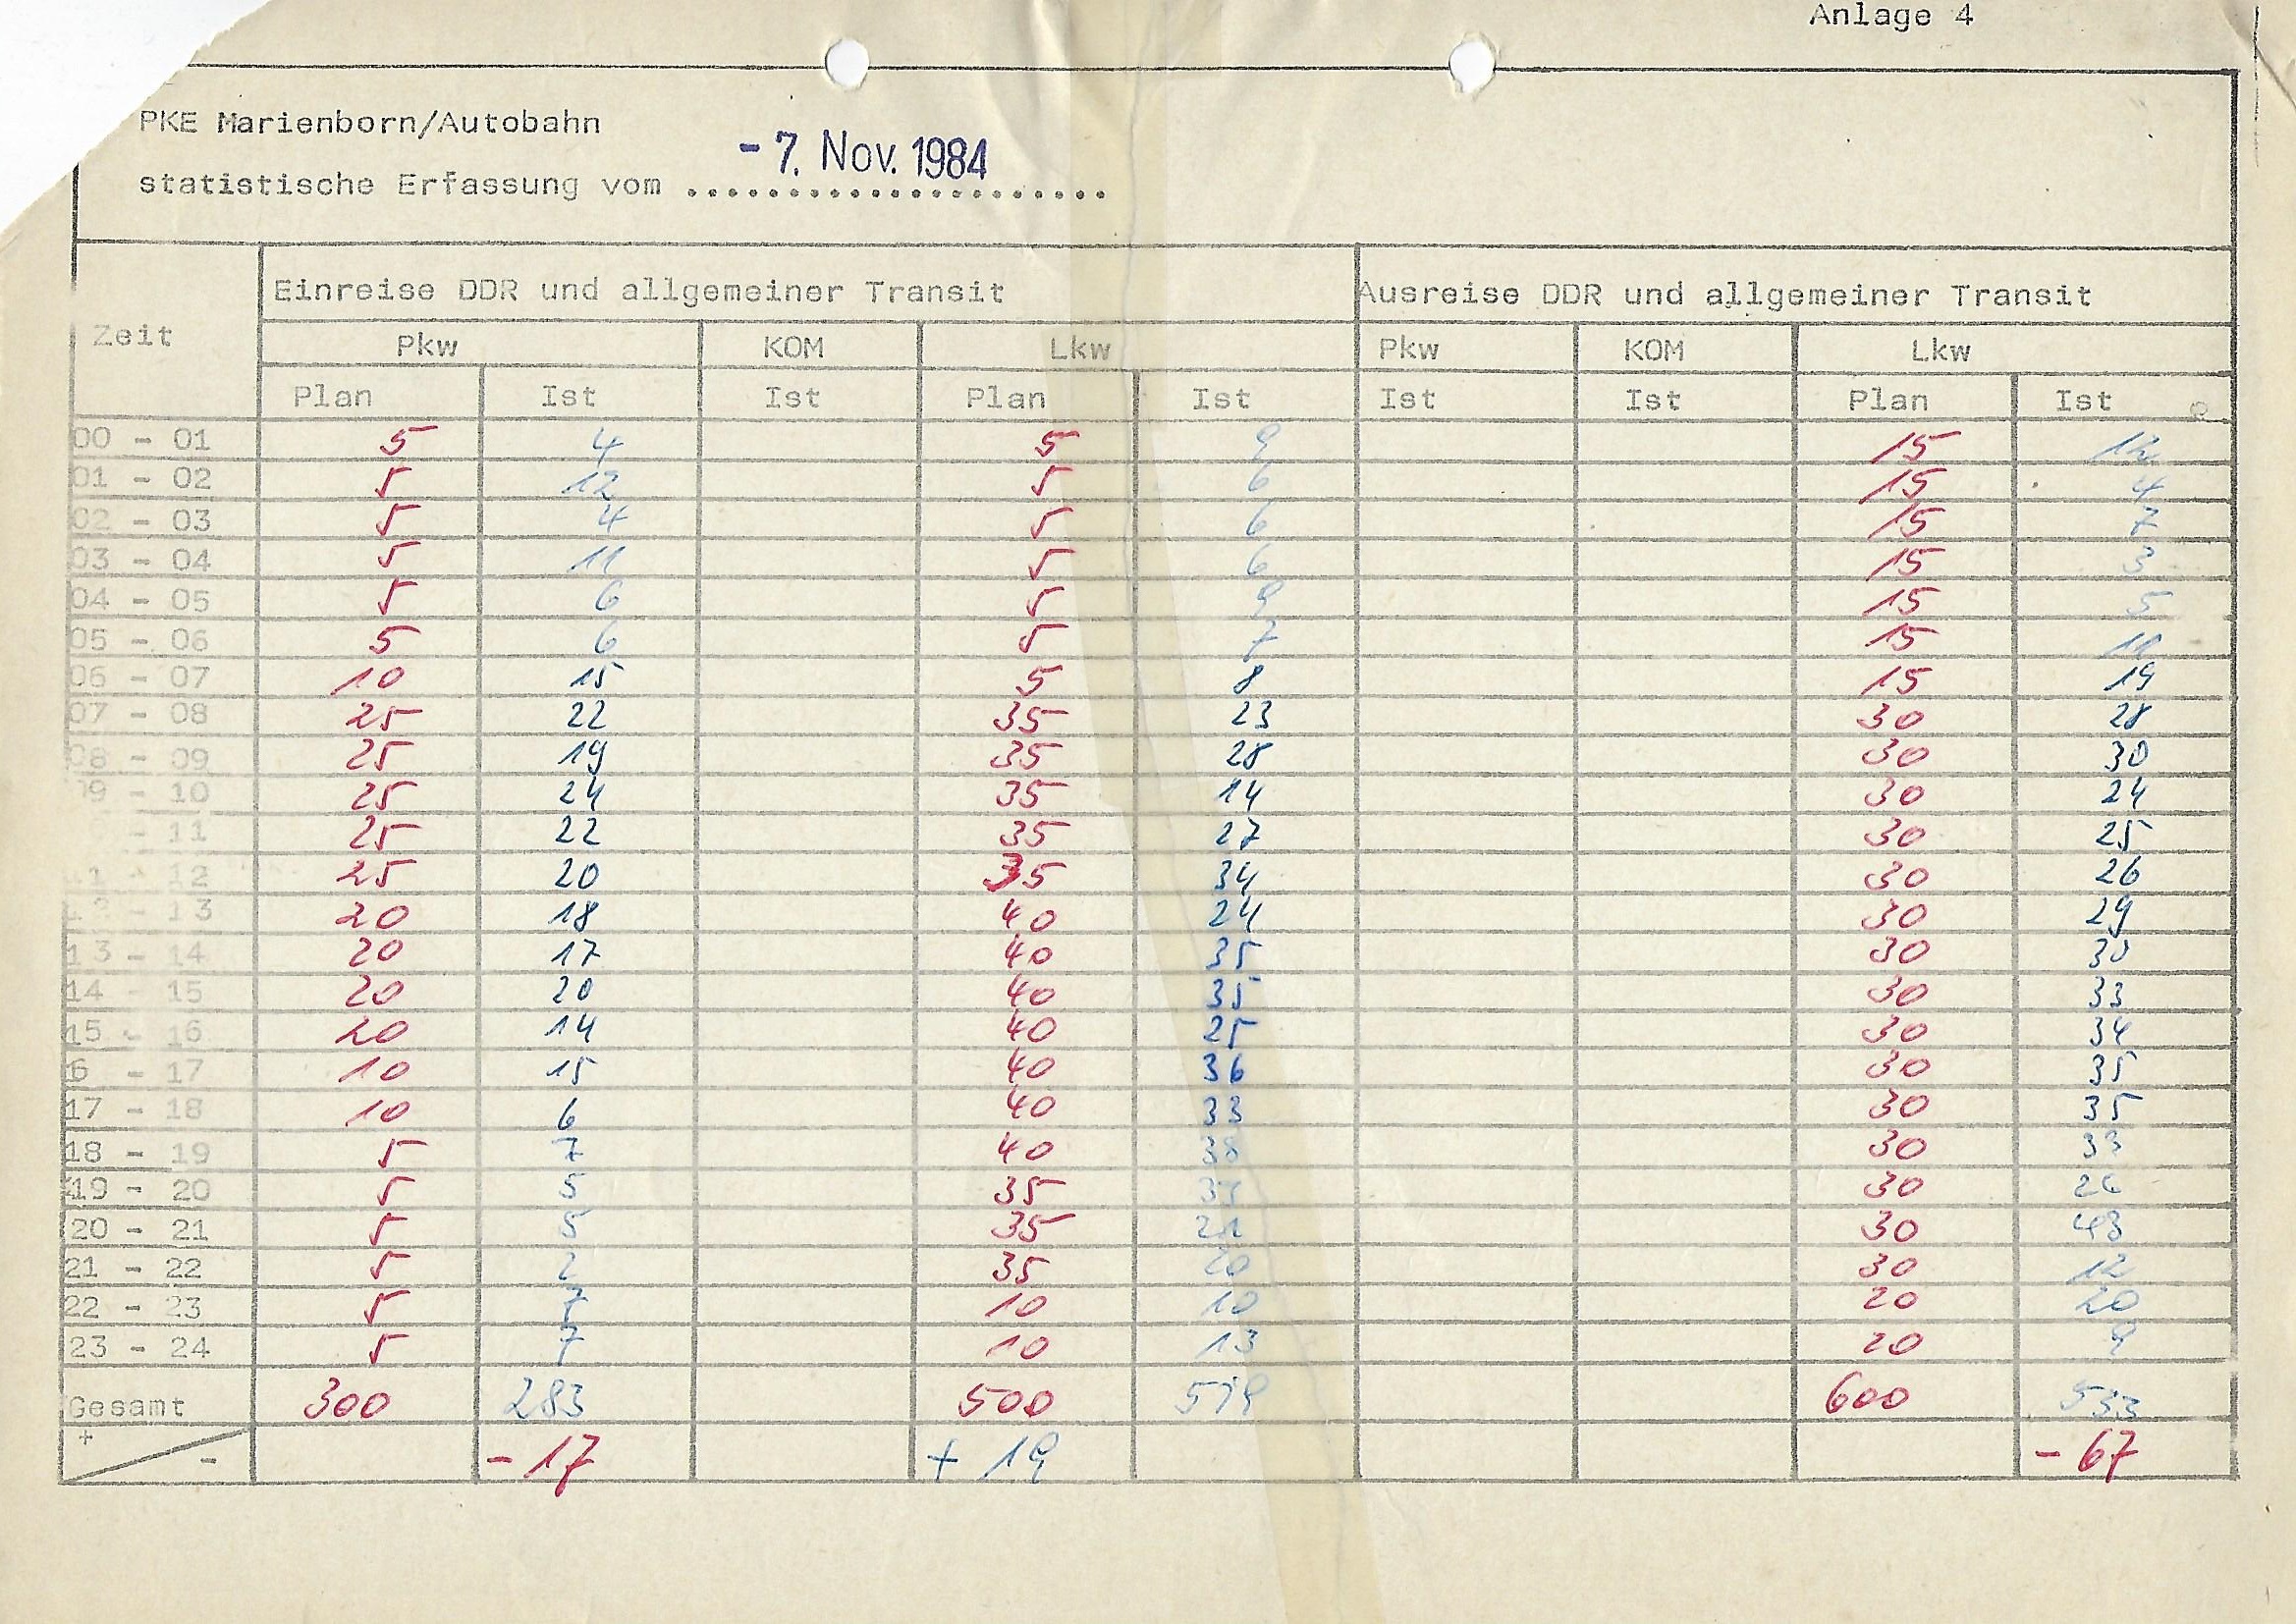 Anlage 4
PKE Marienborn/Autobahn
- 7. Nov. 1984
statistische Erfassung vom .....................
Zeit Einreise DDR und allgemeiner Transit Ausreise DDR und allgemeiner Transit
Pkw KOM Lkw Pkw KOM Lkw
Plan Ist Ist Plan Ist Ist Ist Plan Ist
00 - 01 5 4 5 9 15 12
01 - 02 5 12 5 6 15 4
02 - 03 5 4 5 6 15 7
03 - 04 5 11 5 6 15 3
04 - 05 5 6 5 9 15 5
05 - 06 5 6 5 7 15 11
06 - 07 10 15 5 8 15 19
07 - 08 25 22 35 23 30 28
08 - 09 25 19 35 28 30 30
9 - 10 25 24 35 14 30 24
- 11 25 22 35 27 30 25
1 - 12 25 20 35 34 30 26
12 - 13 20 18 40 24 30 29
13 - 14 20 17 40 35 30 30
14 - 15 20 20 40 35 30 33
15 - 16 20 14 40 25 30 34
6 - 17 10 15 40 36 30 35
17 - 18 10 6 40 33 30 35
18 - 19 5 7 40 38 30 33
19 - 20 5 5 35 30 26
20 - 21 5 5 35 21 30 43
21 - 22 5 2 35 20 30 12
22 - 23 5 7 10 10 20 20
23 - 24 5 7 10 13 20 9
Gesamt 300 283 500 519 600 533
+ - - 17 + 19 - 67